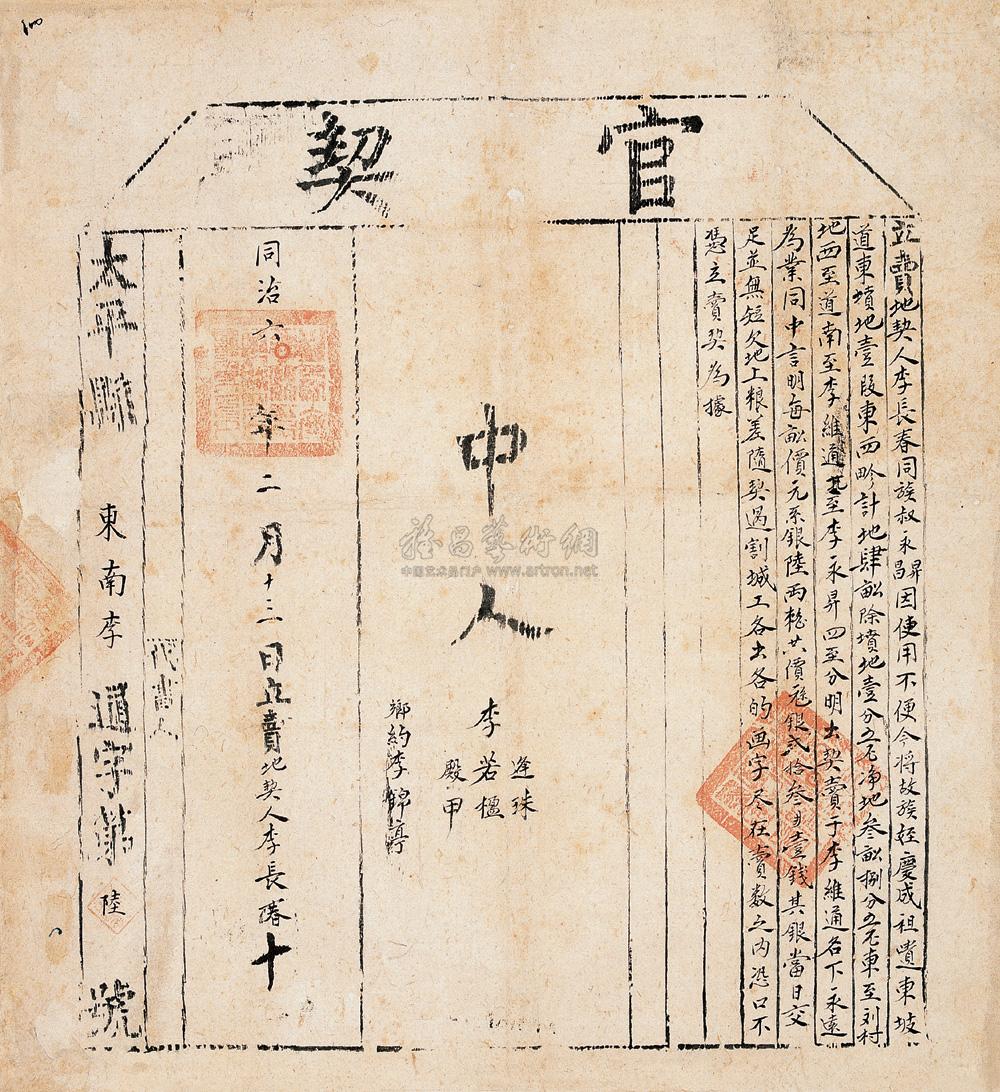 官契
立賣地契人李長春同族叔永昇昌因使用不便今将故族姪慶成祖遺東坡
道東墳地壹段東西畛計地肆畝除墳地壹分五厘净地叁畝捌分五厘東至刘村
地西至道南至李維通北至李永昇四至分明出契賣于李維通名下永遠
為業同中言明每畝價元系銀陸両整共價銀弍拾叁両壹錢其銀當日交
足並無短欠地上粮差隨契過割城工各出各的画字尽在賣数之内恐口不
憑立賣契為據
中人
逢珠
李若楹
殿甲
鄉約李錦亭
同治六年二月十三日立賣地契人李長春十
代書人
太平縣東南李通字第陸號
雅昌藝術網
中国艺术品门户 www.artron.net